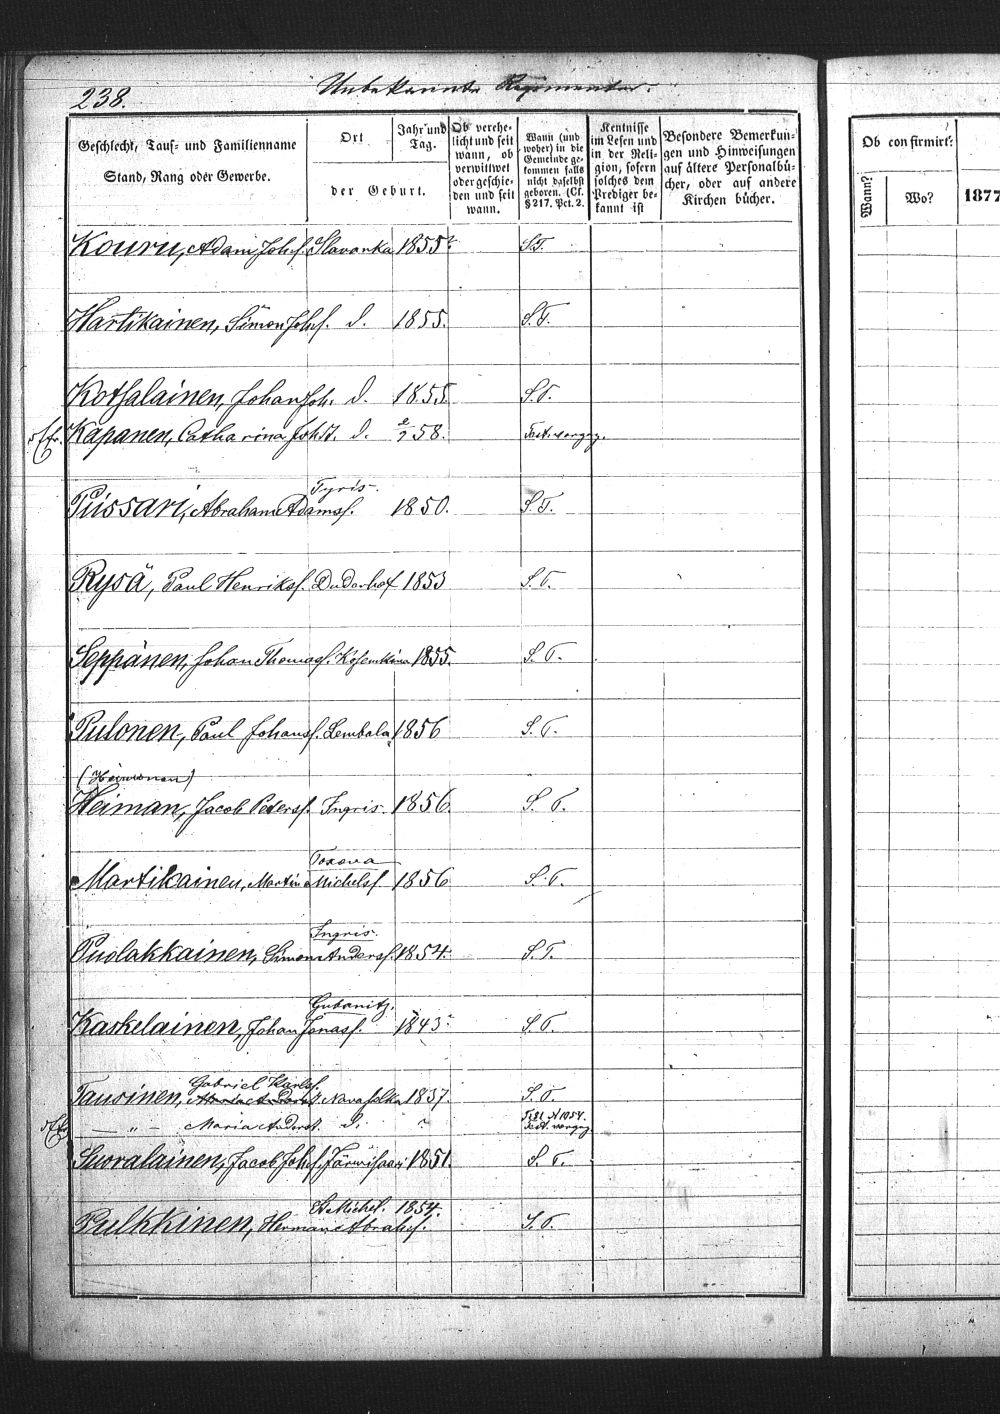 238.
Unbekannte Regimenter.
Geschlecht, Tauf- und Familienname
Stand, Rang oder Gewerbe.
Ort
Jahr und Tag.
der Geburt.
Ob verehe-
licht und seit
wann, ob
verwittwet
oder geschie-
den und seit
wann.
Wann (und
woher) in die
Gemeinde ge-
kommen falls
nicht daselbst
geboren. (Cf.
§ 217. Pct. 2.
Kentnisse
im Lesen und
in der Reli-
gion, sofern
solches dem
Prediger be-
kannt ist
Besondere Bemerkun-
gen und Hinweisungen
auf ältere Personalbü-
cher, oder auf andere
Kirchen bücher.
Ob confirmirt?
Wann?
Wo?
1877
Kouru, Adam Johs. Slavanka 1855 S.T.
Hartikainen, Simon Johs. d. 1855. S.T.
Kotsalainen, Johan Joh. d. 1855 S.T.
Kapanen, Catharina Johst. d. 2/2 58.
Tyris.
Pissari, Abraham Adams. 1850. S.T.
Rysä, Paul Henriks. Duderhof 1853 S.T.
Seppänen, Johan Thomas. Kosemkina 1855. S.T.
Pulonen, Paul Johans. Lembala 1856 S.T.
(Heimonen)
Heiman, Jacob Peters. Ingris. 1856. S.T.
Toxova
Martikainen, Martin Michels. 1856 S.T.
Ingris.
Puolakkainen, Simon Anders. 1854. S.T.
Gubanitz.
Kaskelainen, Johan Jonas. 1843 S.T.
Gabriel Karls.
Tausinen, Maria Anderst. Novaselka 1837. S.T.
— „ — Maria Anderst. d.
Suoralainen, Jacob Johs. Järwisaari 1851. S.T.
St Michel. 1854.
Pulkkinen, Herman Abrahs. S.T.